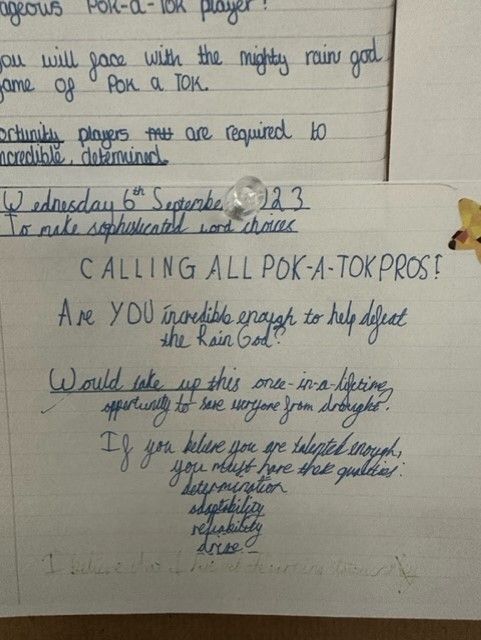 ageous POK-a-TOK player!
ou will face with the mighty rain god
ame of POK a TOK.
ortunity players are required to
ncredible, determined
Wednesday 6th Septembe 23
To make sophisticated word choices
CALLING ALL POK-A-TOK PROS!
Are YOU incredible enough to help defeat
the Rain God?
Would take up this once-in-a-lifetime
opportunity to save everyone from drought.
If you believe you are talented enough,
you must have these qualities:
determination
adaptability
reliability
drive
I believe